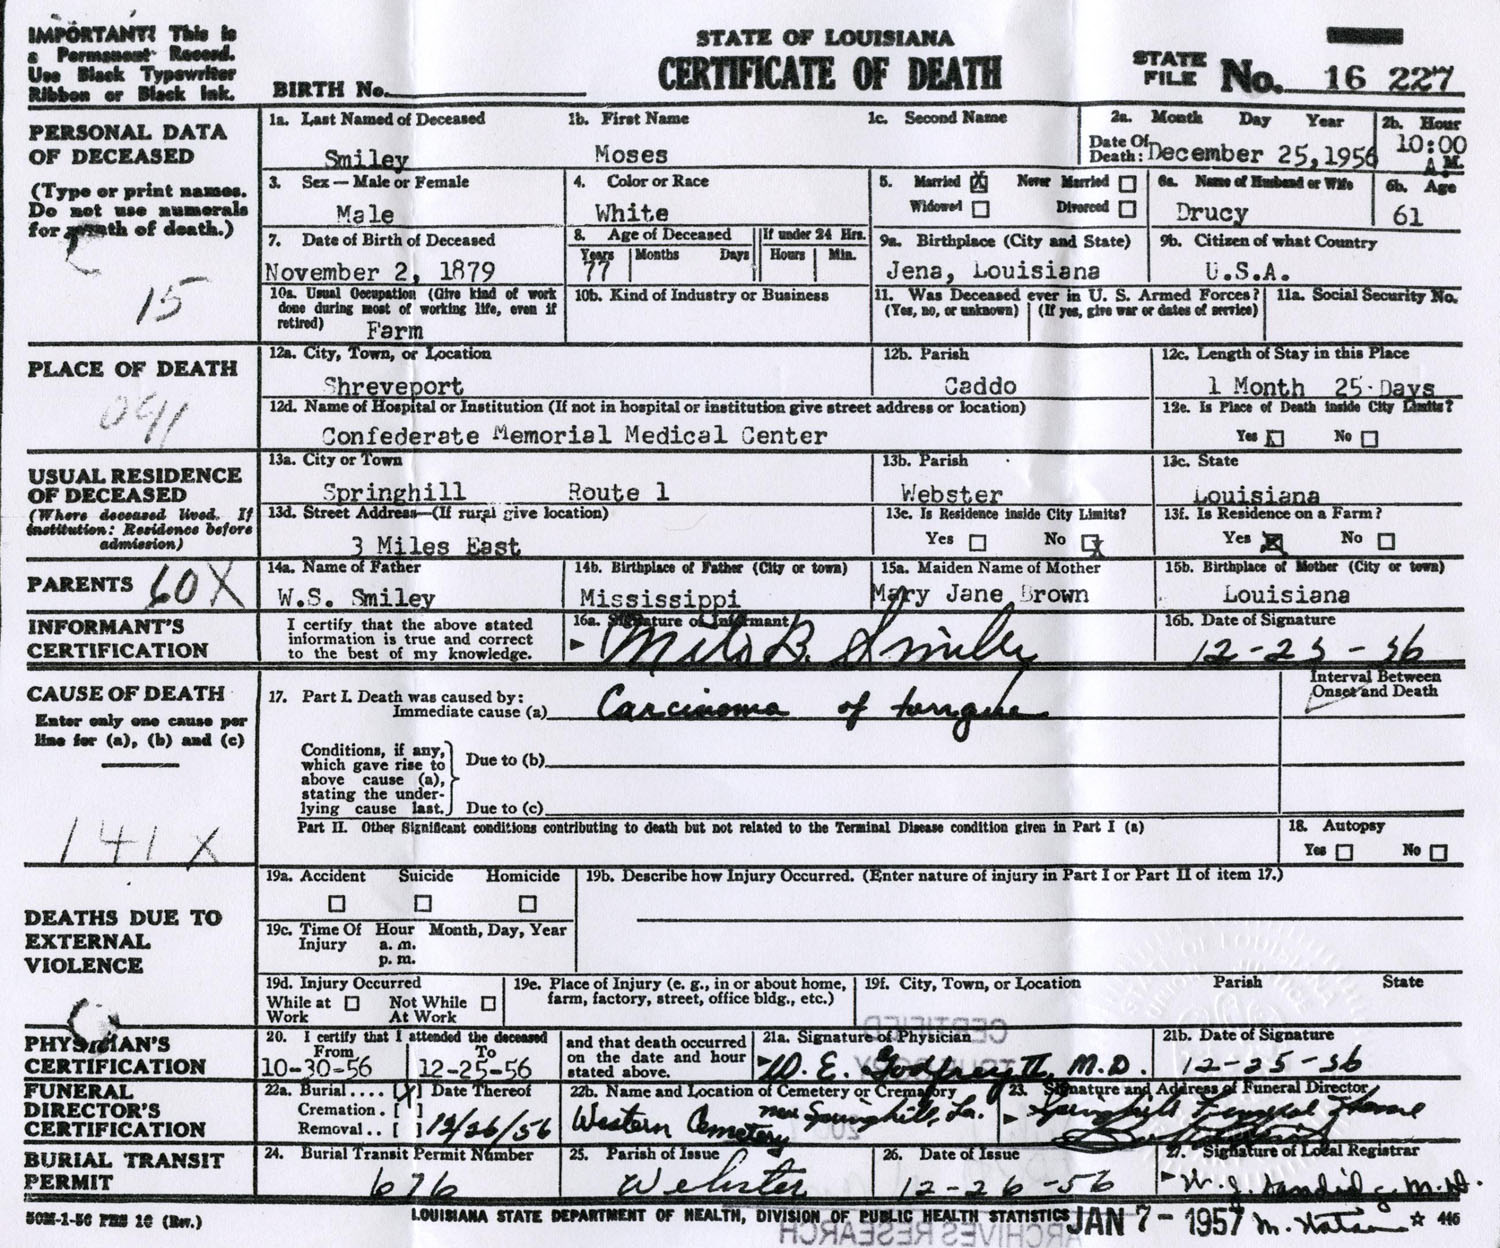 IMPORTANT! This is
a Permanent Record.
Use Black Typewriter
Ribbon or Black Ink.
BIRTH No.
STATE OF LOUISIANA
CERTIFICATE OF DEATH
STATE FILE No. 16 227
PERSONAL DATA
OF DECEASED
(Type or print names.
Do not use numerals
for month of death.)
15
1a. Last Named of Deceased
Smiley
1b. First Name
Moses
1c. Second Name
2a. Month Day Year
Date Of Death: December 25, 1956
2b. Hour
10:00
A.M.
3. Sex — Male or Female
Male
4. Color or Race
White
5. Married X Never Married
Widowed Divorced
6a. Name of Husband or Wife
Drucy
6b. Age
61
7. Date of Birth of Deceased
November 2, 1879
8. Age of Deceased
Years Months Days
77
If under 24 Hrs.
Hours Min.
9a. Birthplace (City and State)
Jena, Louisiana
9b. Citizen of what Country
U.S.A.
10a. Usual Occupation (Give kind of work
done during most of working life, even if
retired) Farm
10b. Kind of Industry or Business
11. Was Deceased ever in U. S. Armed Forces?
(Yes, no, or unknown) (If yes, give war or dates of service)
11a. Social Security No.
PLACE OF DEATH
091
12a. City, Town, or Location
Shreveport
12b. Parish
Caddo
12c. Length of Stay in this Place
1 Month 25 Days
12d. Name of Hospital or Institution (If not in hospital or institution give street address or location)
Confederate Memorial Medical Center
12e. Is Place of Death inside City Limits?
Yes No
USUAL RESIDENCE
OF DECEASED
(Where deceased lived. If
institution: Residence before
admission)
13a. City or Town
Springhill Route 1
13b. Parish
Webster
13c. State
Louisiana
13d. Street Address—(If rural give location)
3 Miles East
13e. Is Residence inside City Limits?
Yes No X
13f. Is Residence on a Farm?
Yes X No
PARENTS 60X
14a. Name of Father
W.S. Smiley
14b. Birthplace of Father (City or town)
Mississippi
15a. Maiden Name of Mother
Mary Jane Brown
15b. Birthplace of Mother (City or town)
Louisiana
INFORMANT'S
CERTIFICATION
I certify that the above stated
information is true and correct
to the best of my knowledge.
16a. Signature of Informant
B. Smiley
16b. Date of Signature
12-25-56
CAUSE OF DEATH
Enter only one cause per
line for (a), (b) and (c)
141X
17. Part I. Death was caused by:
Immediate cause (a) Carcinoma of tongue
Interval Between
Onset and Death
Conditions, if any,
which gave rise to
above cause (a),
stating the under-
lying cause last.
Due to (b)
Due to (c)
Part II. Other Significant conditions contributing to death but not related to the Terminal Disease condition given in Part I (a)
18. Autopsy
Yes No
DEATHS DUE TO
EXTERNAL
VIOLENCE
19a. Accident Suicide Homicide
19b. Describe how Injury Occurred. (Enter nature of injury in Part I or Part II of item 17.)
19c. Time Of Hour Month, Day, Year
Injury a. m.
p. m.
19d. Injury Occurred
While at Not While
Work At Work
19e. Place of Injury (e. g., in or about home,
farm, factory, street, office bldg., etc.)
19f. City, Town, or Location Parish State
PHYSICIAN'S
CERTIFICATION
20. I certify that I attended the deceased
From To
10-30-56 12-25-56
and that death occurred
on the date and hour
stated above.
21a. Signature of Physician
W. E. Godfrey II, M.D.
21b. Date of Signature
12-25-56
FUNERAL
DIRECTOR'S
CERTIFICATION
22a. Burial.... [X] Date Thereof
Cremation. [ ]
Removal.. [ ] 12/26/56
22b. Name and Location of Cemetery or Crematory
Western Cemetery near Springhill, La.
23. Signature and Address of Funeral Director
Springhill Funeral Home
BURIAL TRANSIT
PERMIT
24. Burial Transit Permit Number
676
25. Parish of Issue
Webster
26. Date of Issue
12-26-56
27. Signature of Local Registrar
50M-1-56 PHS 16 (Rev.)
LOUISIANA STATE DEPARTMENT OF HEALTH, DIVISION OF PUBLIC HEALTH STATISTICS
JAN 7 - 1957
M. Watson
☆ 446
CERTIFIED
ARCHIVES RESEARCH